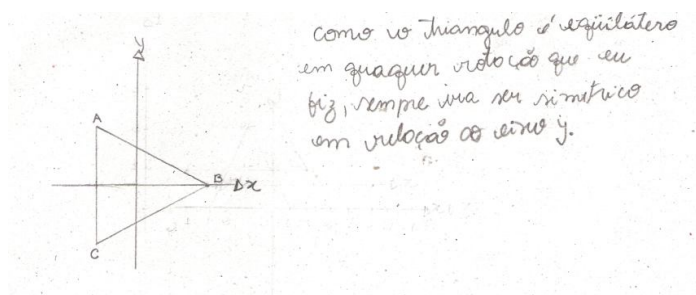 como o triangulo é eqüilátero
em quaquer rotação que eu
fiz, sempre ira ser simetrico
em relação ao eixo y.
y
A
B
x
C